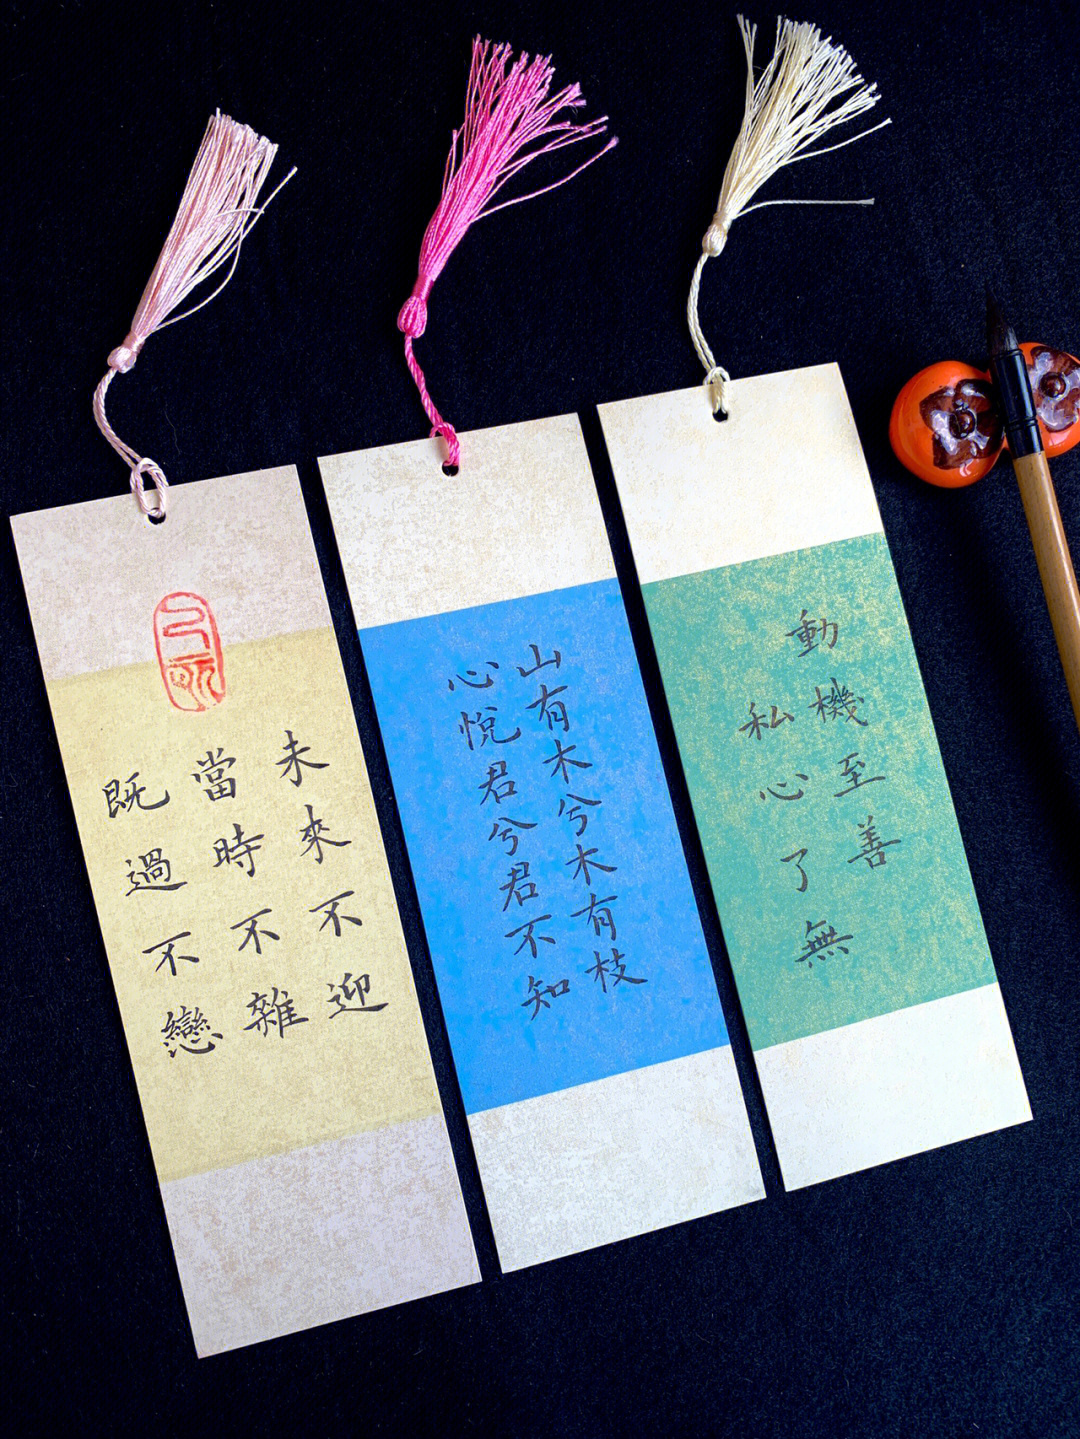 未來不迎
當時不雜
既過不戀
山有木兮木有枝
心悅君兮君不知
動機至善
私心了無